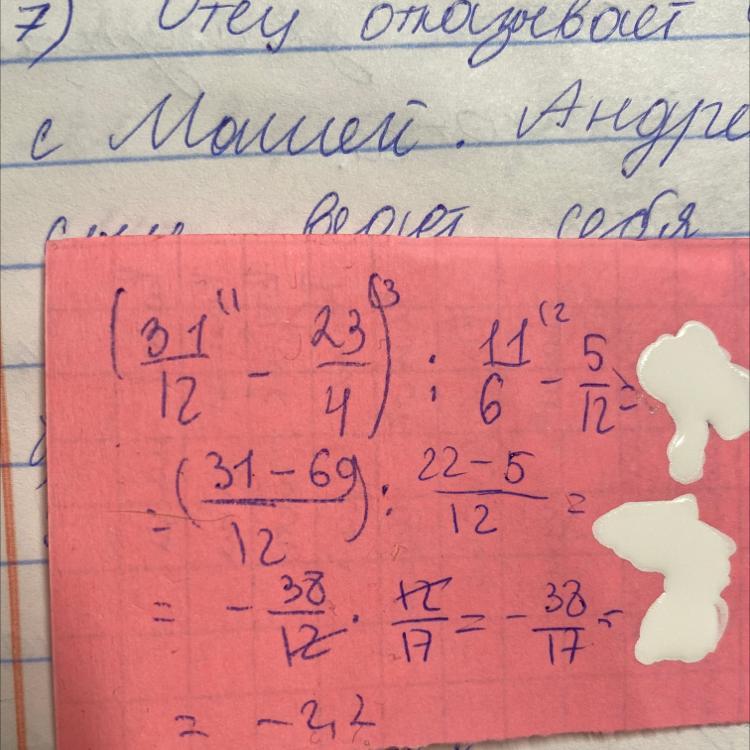 7) Отец отказывает
с Машей. Андре
ведет себя
(31/12 ⁽¹ - 23/4)⁽³ : 11/6 ⁽² - 5/12 =
= (31-69/12) : 22-5/12 =
= - 38/12 · 12/17 = - 38/17 =
= -2,2